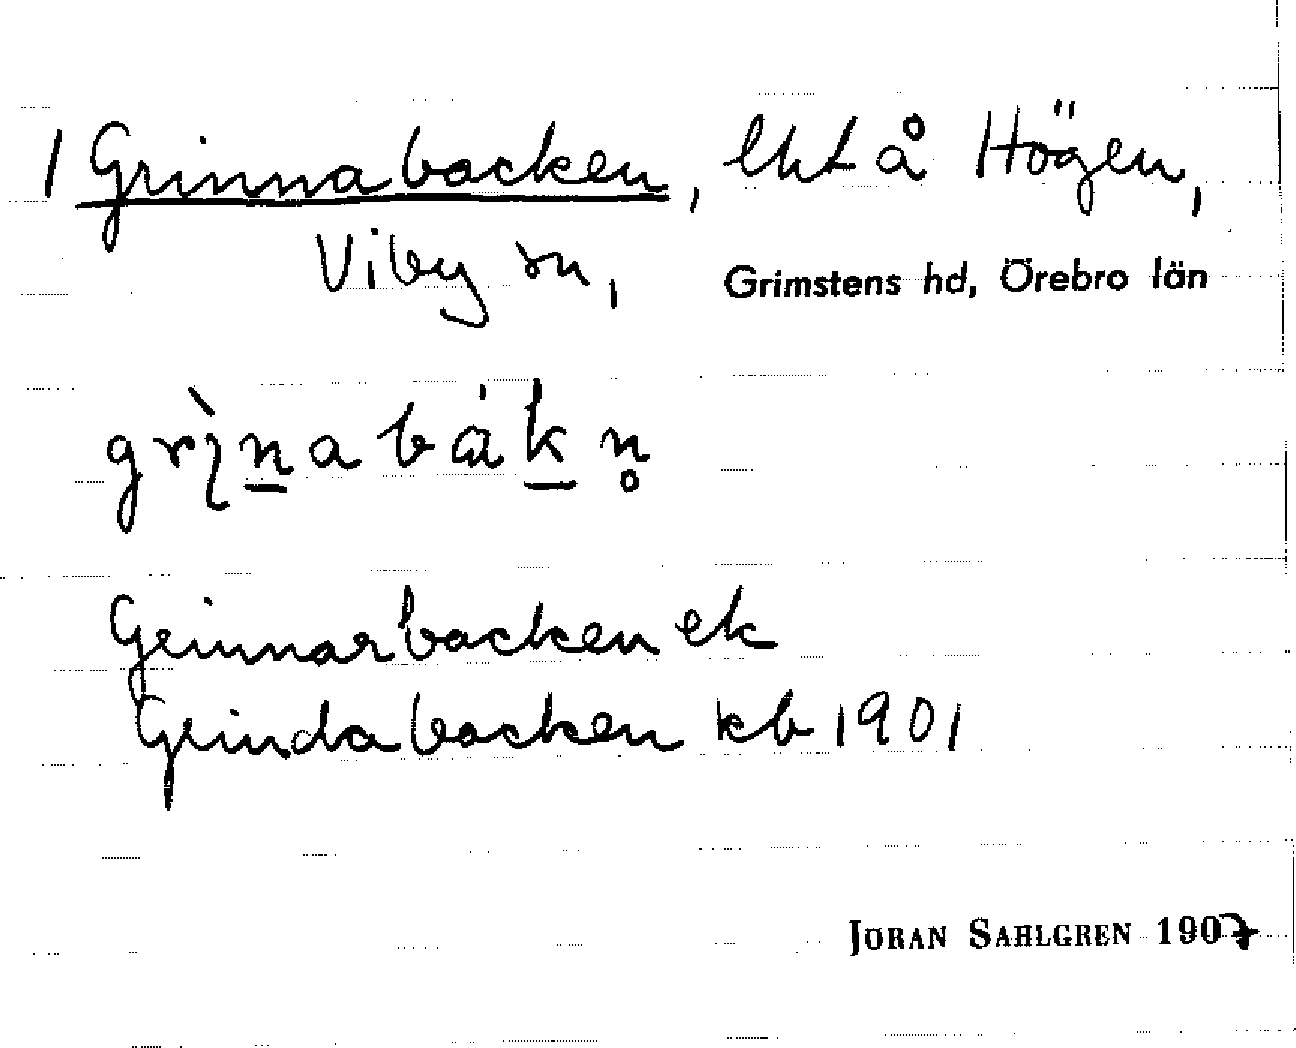 1 Grinnabacken, lht å Högen,
Viby sn,
Grimstens hd, Örebro län
grı̀n̲abák̲n̥
Grinnarbacken ek
Grindabacken kb 1901
JÖRAN SAHLGREN 1907